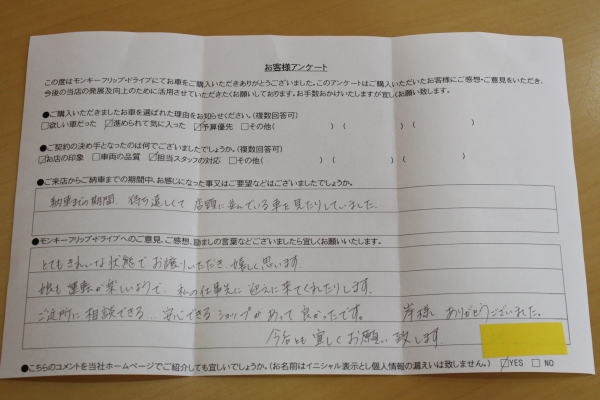 お客様アンケート
この度はモンキーフリップ・ドライブにてお車をご購入いただきありがとうございました。このアンケートはご購入いただいたお客様にご感想・ご意見をいただき、
今後の当店の発展及向上のために活用させていただきたくお願いしております。お手数おかけいたしますが宜しくお願い致します。
●ご購入いただきましたお車を選ばれた理由をお知らせください。(複数回答可)
□欲しい車だった ☑進められて気に入った ☑予算優先 □その他( ) ( ) ( )
●ご契約の決め手となったのは何でございましたでしょうか。(複数回答可)
☑お店の印象 □車両の品質 ☑担当スタッフの対応 □その他( ) ( ) ( )
●ご来店からご納車までの期間中、お感じになった事又はご要望などはございましたでしょうか。
納車までの期間、待ち遠しくて店頭に並んでいる車を見たりしていました。
●モンキーフリップ・ドライブへのご意見、ご感想、励ましの言葉などございましたら宜しくお願いいたします。
とてもきれいな状態でお譲りいただき、嬉しく思います。
娘も運転が楽しいようで、私の仕事先に迎えに来てくれたりします。
ご近所に相談できる…安心できるショップがあって良かったです。 岸様 ありがとうございました。
今后とも宜しくお願い致します
●こちらのコメントを当社ホームページでご紹介しても宜しいでしょうか。(お名前はイニシャル表示とし個人情報の漏えいは致しません。) ☑YES □NO